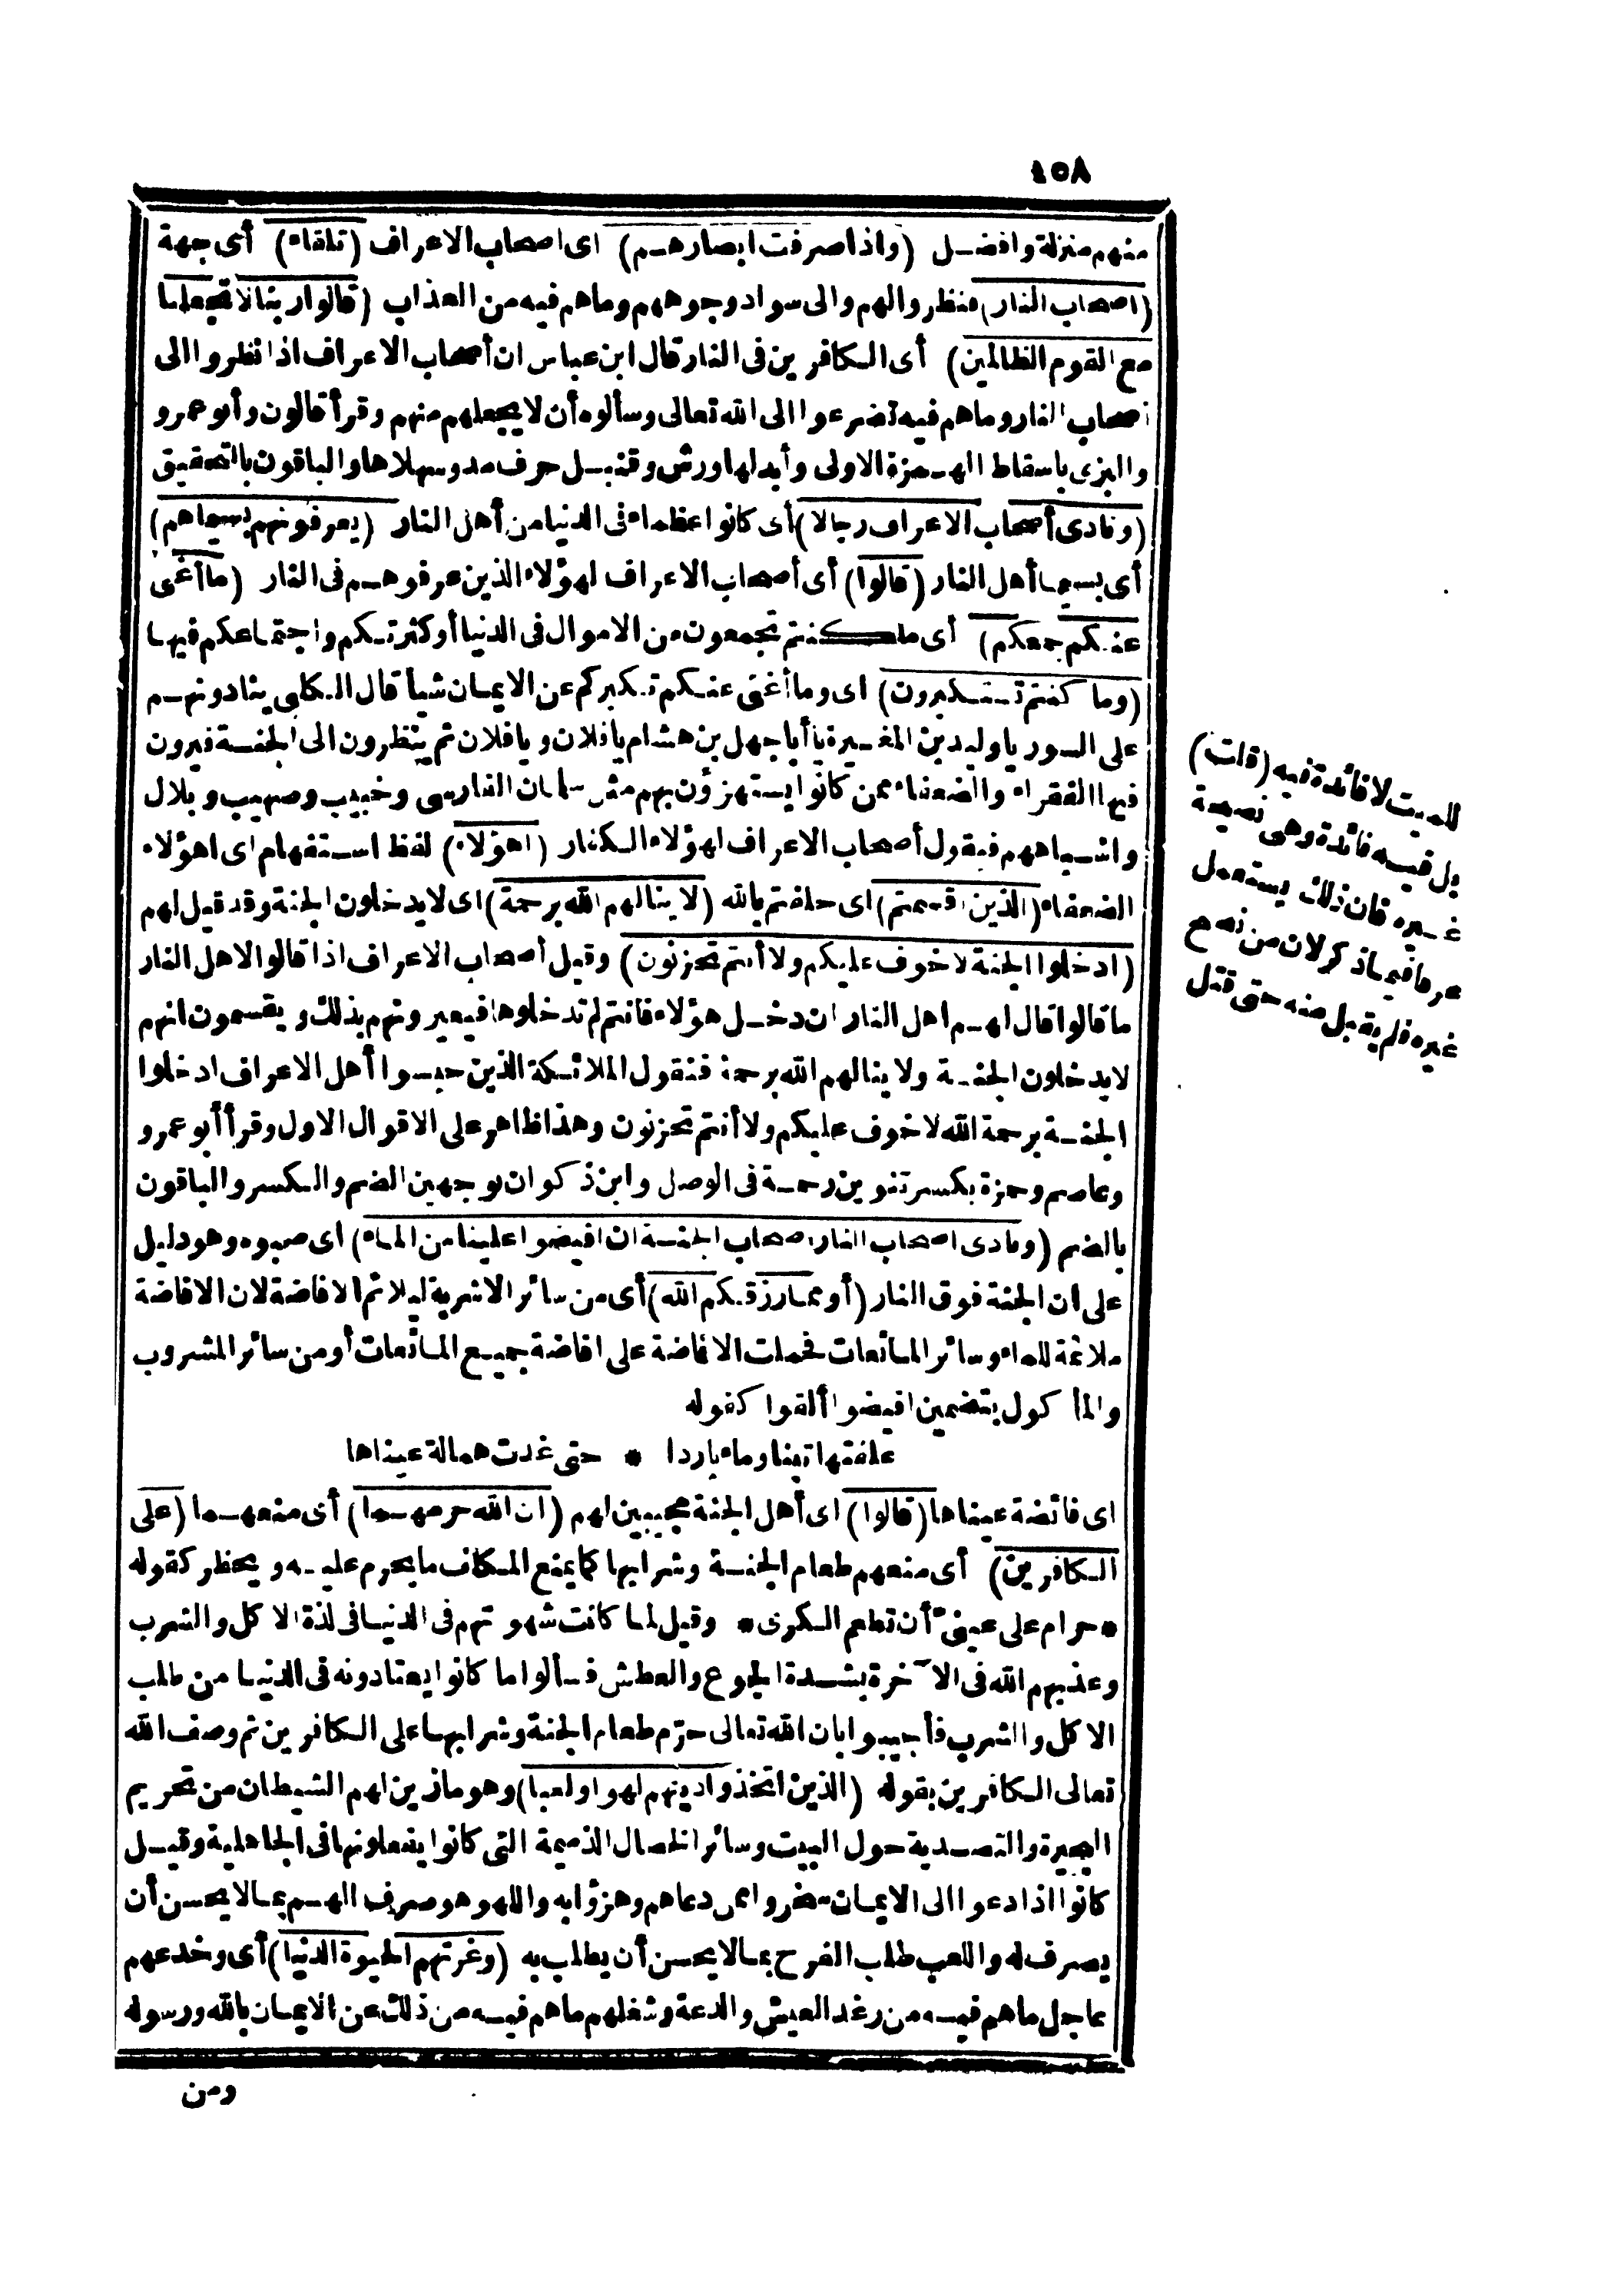 ٤٥٨
منهم منزلة وافضل (واذا صرفت ابصارهم) اى اصحاب الاعراف (تلقاء) أى جهة
(اصحاب النار) فنظروا لهم والى سواد وجوههم وماهم فيه من العذاب (قالوا ربنا لا تجعلنا
مع القوم الظالمين) أى الكافرين فى النار قال ابن عباس ان أصحاب الاعراف اذا نظروا الى
أصحاب النار وماهم فيه تضرعوا الى الله تعالى وسألوه أن لا يجعلهم منهم وقرأ قالون وأبو عمرو
والبزى باسقاط الهمزة الاولى وأبدلها ورش وقنبل حرف مد وسهلاها والباقون بالتحقيق
(ونادى أصحاب الاعراف رجالا) أى كانوا عظماء فى الدنيا من أهل النار (يعرفونهم بسيماهم)
أى بسيما أهل النار (قالوا) أى أصحاب الاعراف لهؤلاء الذين عرفوهم فى النار (ما أغنى
عنكم جمعكم) أى ما كنتم تجمعون من الاموال فى الدنيا أو كثرتكم واجتماعكم فيها
(وما كنتم تستكبرون) اى وما أغنى عنكم تكبركم عن الايمان شيأ قال الكلبى ينادونهم
على السور يا وليد بن المغيرة يا أبا جهل بن هشام يا فلان ويا فلان ثم ينظرون الى الجنة فيرون
فيها الفقراء والضعفاء ممن كانوا يستهزؤن بهم مثل سلمان الفارسى وخبيب وصهيب وبلال
واشباههم فيقول أصحاب الاعراف لهؤلاء الكفار (أهؤلاء) لفظ استفهام اى اهؤلاء
الضعفاء (الذين اقسمتم) اى حلفتم بالله (لا ينالهم الله برحمة) اى لا يدخلون الجنة وقد قيل لهم
(ادخلوا الجنة لا خوف عليكم ولا أنتم تحزنون) وقيل أصحاب الاعراف اذا قالوا لاهل النار
ما قالوا قال لهم اهل النار ان دخل هؤلاء فانتم لم تدخلوها فيعيرونهم بذلك ويقسمون انهم
لا يدخلون الجنة ولا ينالهم الله برحمة فتقول الملائكة الذين حبسوا أهل الاعراف ادخلوا
الجنة برحمة الله لا خوف عليكم ولا أنتم تحزنون وهذا ظاهر على الاقوال الاول وقرأ أبو عمرو
وعاصم وحمزة بكسر تنوين رحمة فى الوصل وابن ذكوان بوجهين الضم والكسر والباقون
بالضم (ونادى اصحاب النار اصحاب الجنة ان افيضوا علينا من الماء) اى صبوه وهو دليل
على ان الجنة فوق النار (أو مما رزقكم الله) أى من سائر الاشربة ليلائم الافاضة لان الافاضة
ملائمة للماء وسائر المائعات فحملت الافاضة على افاضة جميع المائعات أو من سائر المشروب
والمأكول بتضمين افيضوا ألقوا كقوله
علفتها تبنا وماء باردا * حتى غدت همالة عيناها
اى فائضة عيناها (قالوا) اى أهل الجنة مجيبين لهم (ان الله حرمهما) أى منعهما (على
الكافرين) أى منعهم طعام الجنة وشرابها كما يمنع المكلف ما يحرم عليه ويحظر كقوله
* حرام على عينىّ أن تطعم الكرى * وقيل لما كانت شهوتهم فى الدنيا فى لذة الاكل والشرب
وعذبهم الله فى الآخرة بشدة الجوع والعطش فسألوا ما كانوا يعتادونه فى الدنيا من طلب
الاكل والشرب فأجيبوا بان الله تعالى حرّم طعام الجنة وشرابها على الكافرين ثم وصف الله
تعالى الكافرين بقوله (الذين اتخذوا دينهم لهوا ولعبا) وهو ما زين لهم الشيطان من تحريم
البحيرة والتصدية حول البيت وسائر الخصال الذميمة التى كانوا يفعلونها فى الجاهلية وقيل
كانوا اذا دعوا الى الايمان سخروا ممن دعاهم وهزؤا به واللهو هو صرف الهم بما لا يحسن أن
يصرف له واللعب طلب الفرح بما لا يحسن أن يطلب به (وغرتهم الحيوة الدنيا) أى وخدعهم
عاجل ماهم فيه من رغد العيش والدعة وشغلهم ماهم فيه من ذلك عن الايمان بالله ورسوله
ومن
للميت لا فائدة فيه (قلت)
بل فيه فائدة وهى نصيحة
غيره فان ذلك يستعمل
عرفا فيما ذكر لان من نصح
غيره فلم يقبل منه حتى قتل